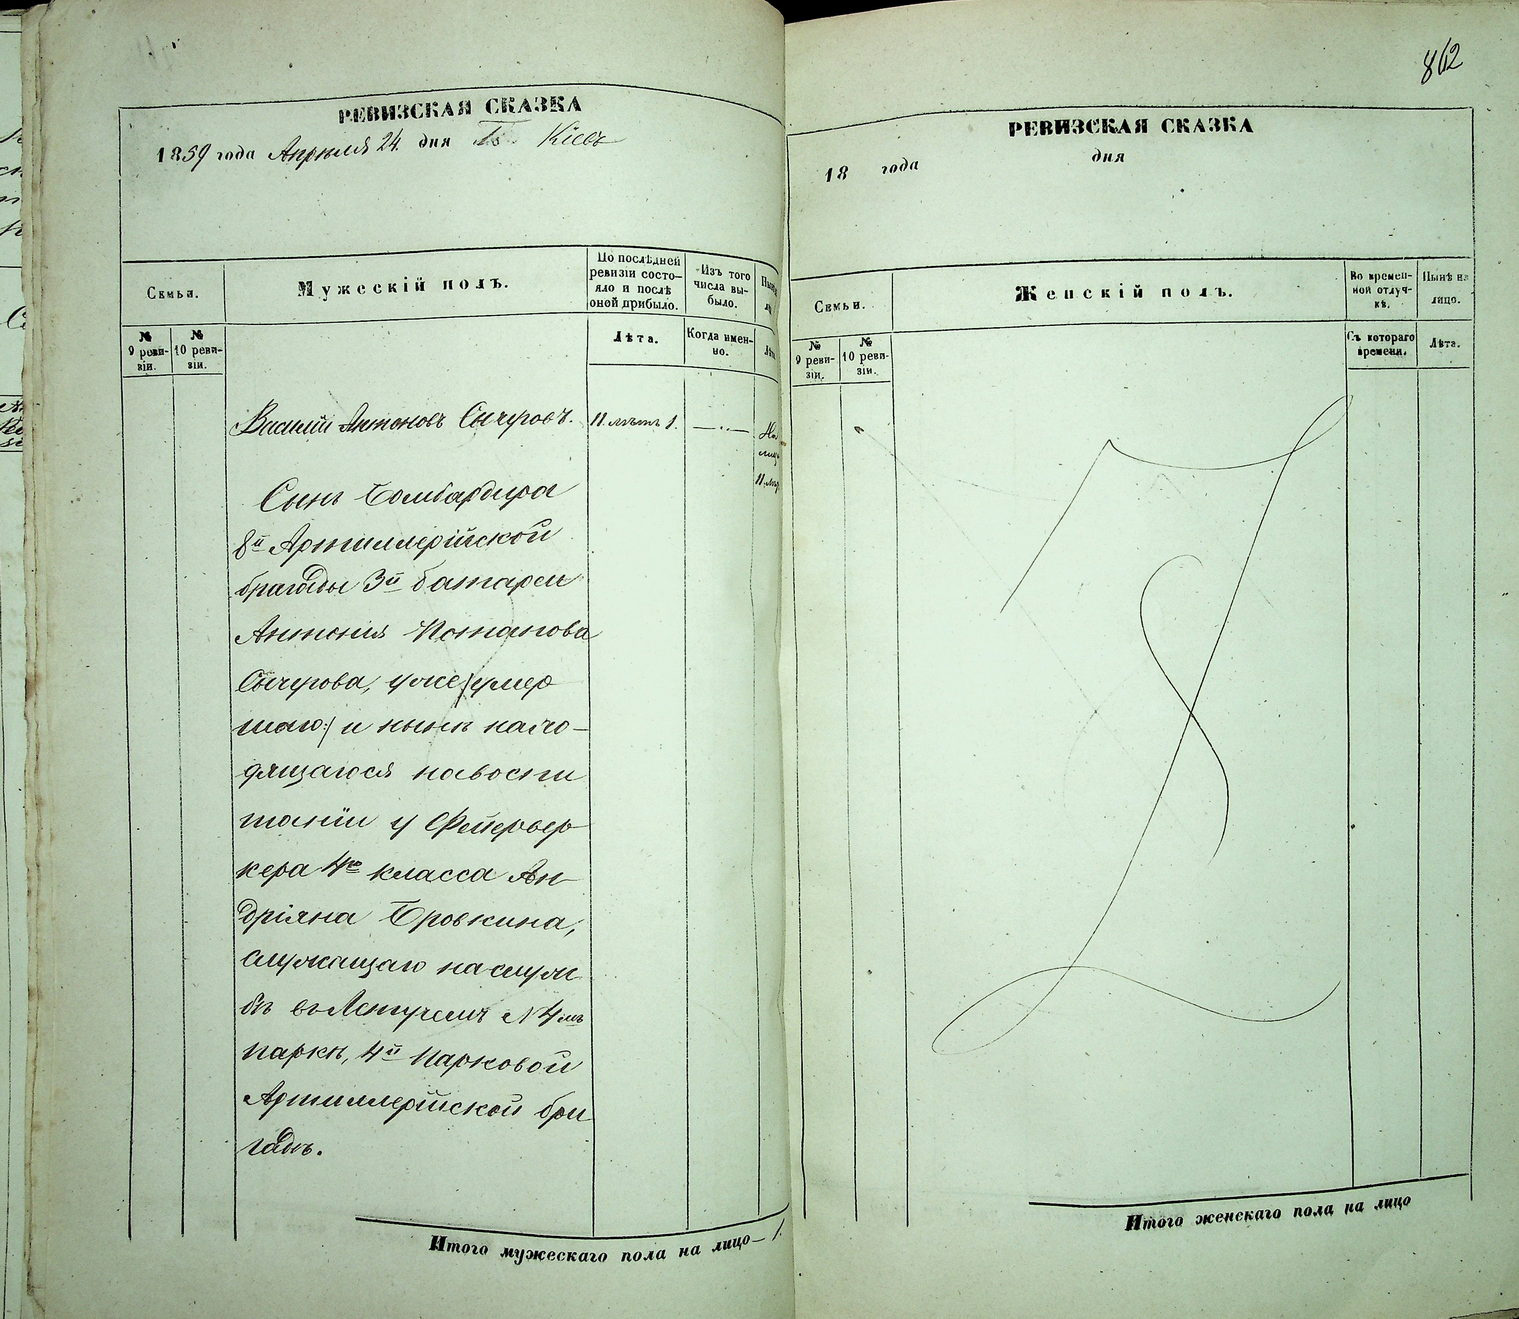 862
РЕВИЗСКАЯ СКАЗКА
1859 года Апреля 24 дня Г. Кіевъ
Семьи.
Мужескій полъ.
По послѣдней ревизіи состо-
яло и послѣ оной прибыло.
Изъ того числа вы-
было.
№ 9 реви-
зіи.
№ 10 реви-
зіи.
Лѣта.
Когда имен-
но.
Василій Антоновъ Сычуровъ. 11 лѣтъ 1.
На
лицо
11 лѣт
Сынъ Бомбардира
8й Артиллерійской
бригады 3й батареи
Антонія Потапова
Сычурова, уже /:умер
шаго:/ и нынѣ нахо-
дящагося на воспи
таніи у Фейервер-
кера 4го класса Ан-
дріяна Бровкина,
служащаго на служ
бѣ въ Летучемъ N 4мъ
паркѣ, 4й Парковой
Артиллерійской бри
гадѣ.
Итого мужескаго пола на лицо — 1.
РЕВИЗСКАЯ СКАЗКА
18 года дня
Семьи.
Женскій полъ.
Во времен-
ной отлуч-
кѣ.
Нынѣ на
лицо.
№ 9 реви-
зіи.
№ 10 реви-
зіи.
Съ котораго
времени.
Лѣта.
Итого женскаго пола на лицо